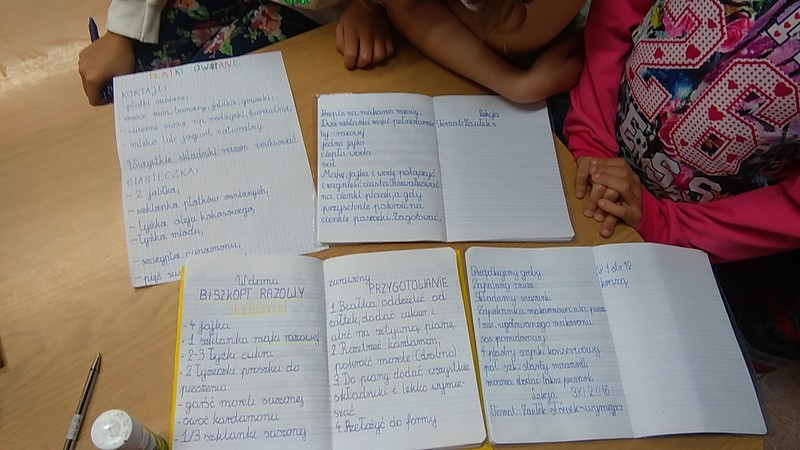 PŁATKI OWSIANE
KOKTAJL:
- płatki owsiane,
- owoce np. banany, jabłka, gruszki
- suszone owoce np. rodzynki, żurawina,
- mleko lub jogurt naturalny
Wszystkie składniki razem zmiksować
CIASTECZKA:
- 2 jabłka,
- szklanka płatków owsianych,
- łyżka oleju kokosowego,
- łyżka miodu,
- szczypta cynamonu,
- pięć
Przepis na makaron razowy.
Dwie szklanki mąki pełnoziarnis
tej - razowej
jedno jajko
ciepła woda
sól
Mąkę, jajka i wodę połączyć
i zagnieść ciasto. Rozwałkować
na cienki placek, a gdy
przyschnie pokroić na
cienkie paseczki. Zagotować.
Lekcja
Temat: Zaułek s
W domu
BISZKOPT RAZOWY
- 4 jajka
- 1 szklanka mąki razowej
- 2-3 łyżki cukru
- 2 łyżeczki proszku do
pieczenia
- garść moreli suszonej
- owoc kardamonu
- 1/3 szklanki suszonej
żurawiny
PRZYGOTOWANIE
1. Białka oddzielić od
żółtek, dodać cukier i
ubić na sztywną pianę
2. Rozetrzeć kardamon,
pokroić morele (drobno)
3. Do piany dodać wszystkie
składniki i lekko wymie-
szać
4. Przełożyć do formy
Porządkujemy groby.
Zapalamy znicze.
Składamy wiązanki.
Zapiekanka makaronowa a'la pizza
1 szk. ugotowanego makaronu
sos pomidorowy
4 plastry szynki konserwowej
pół szk. startej mozzarelli
można dodać także pieczarki
Lekcja 3 XI 2016
Temat: Zaułek słówek - wyrazy z